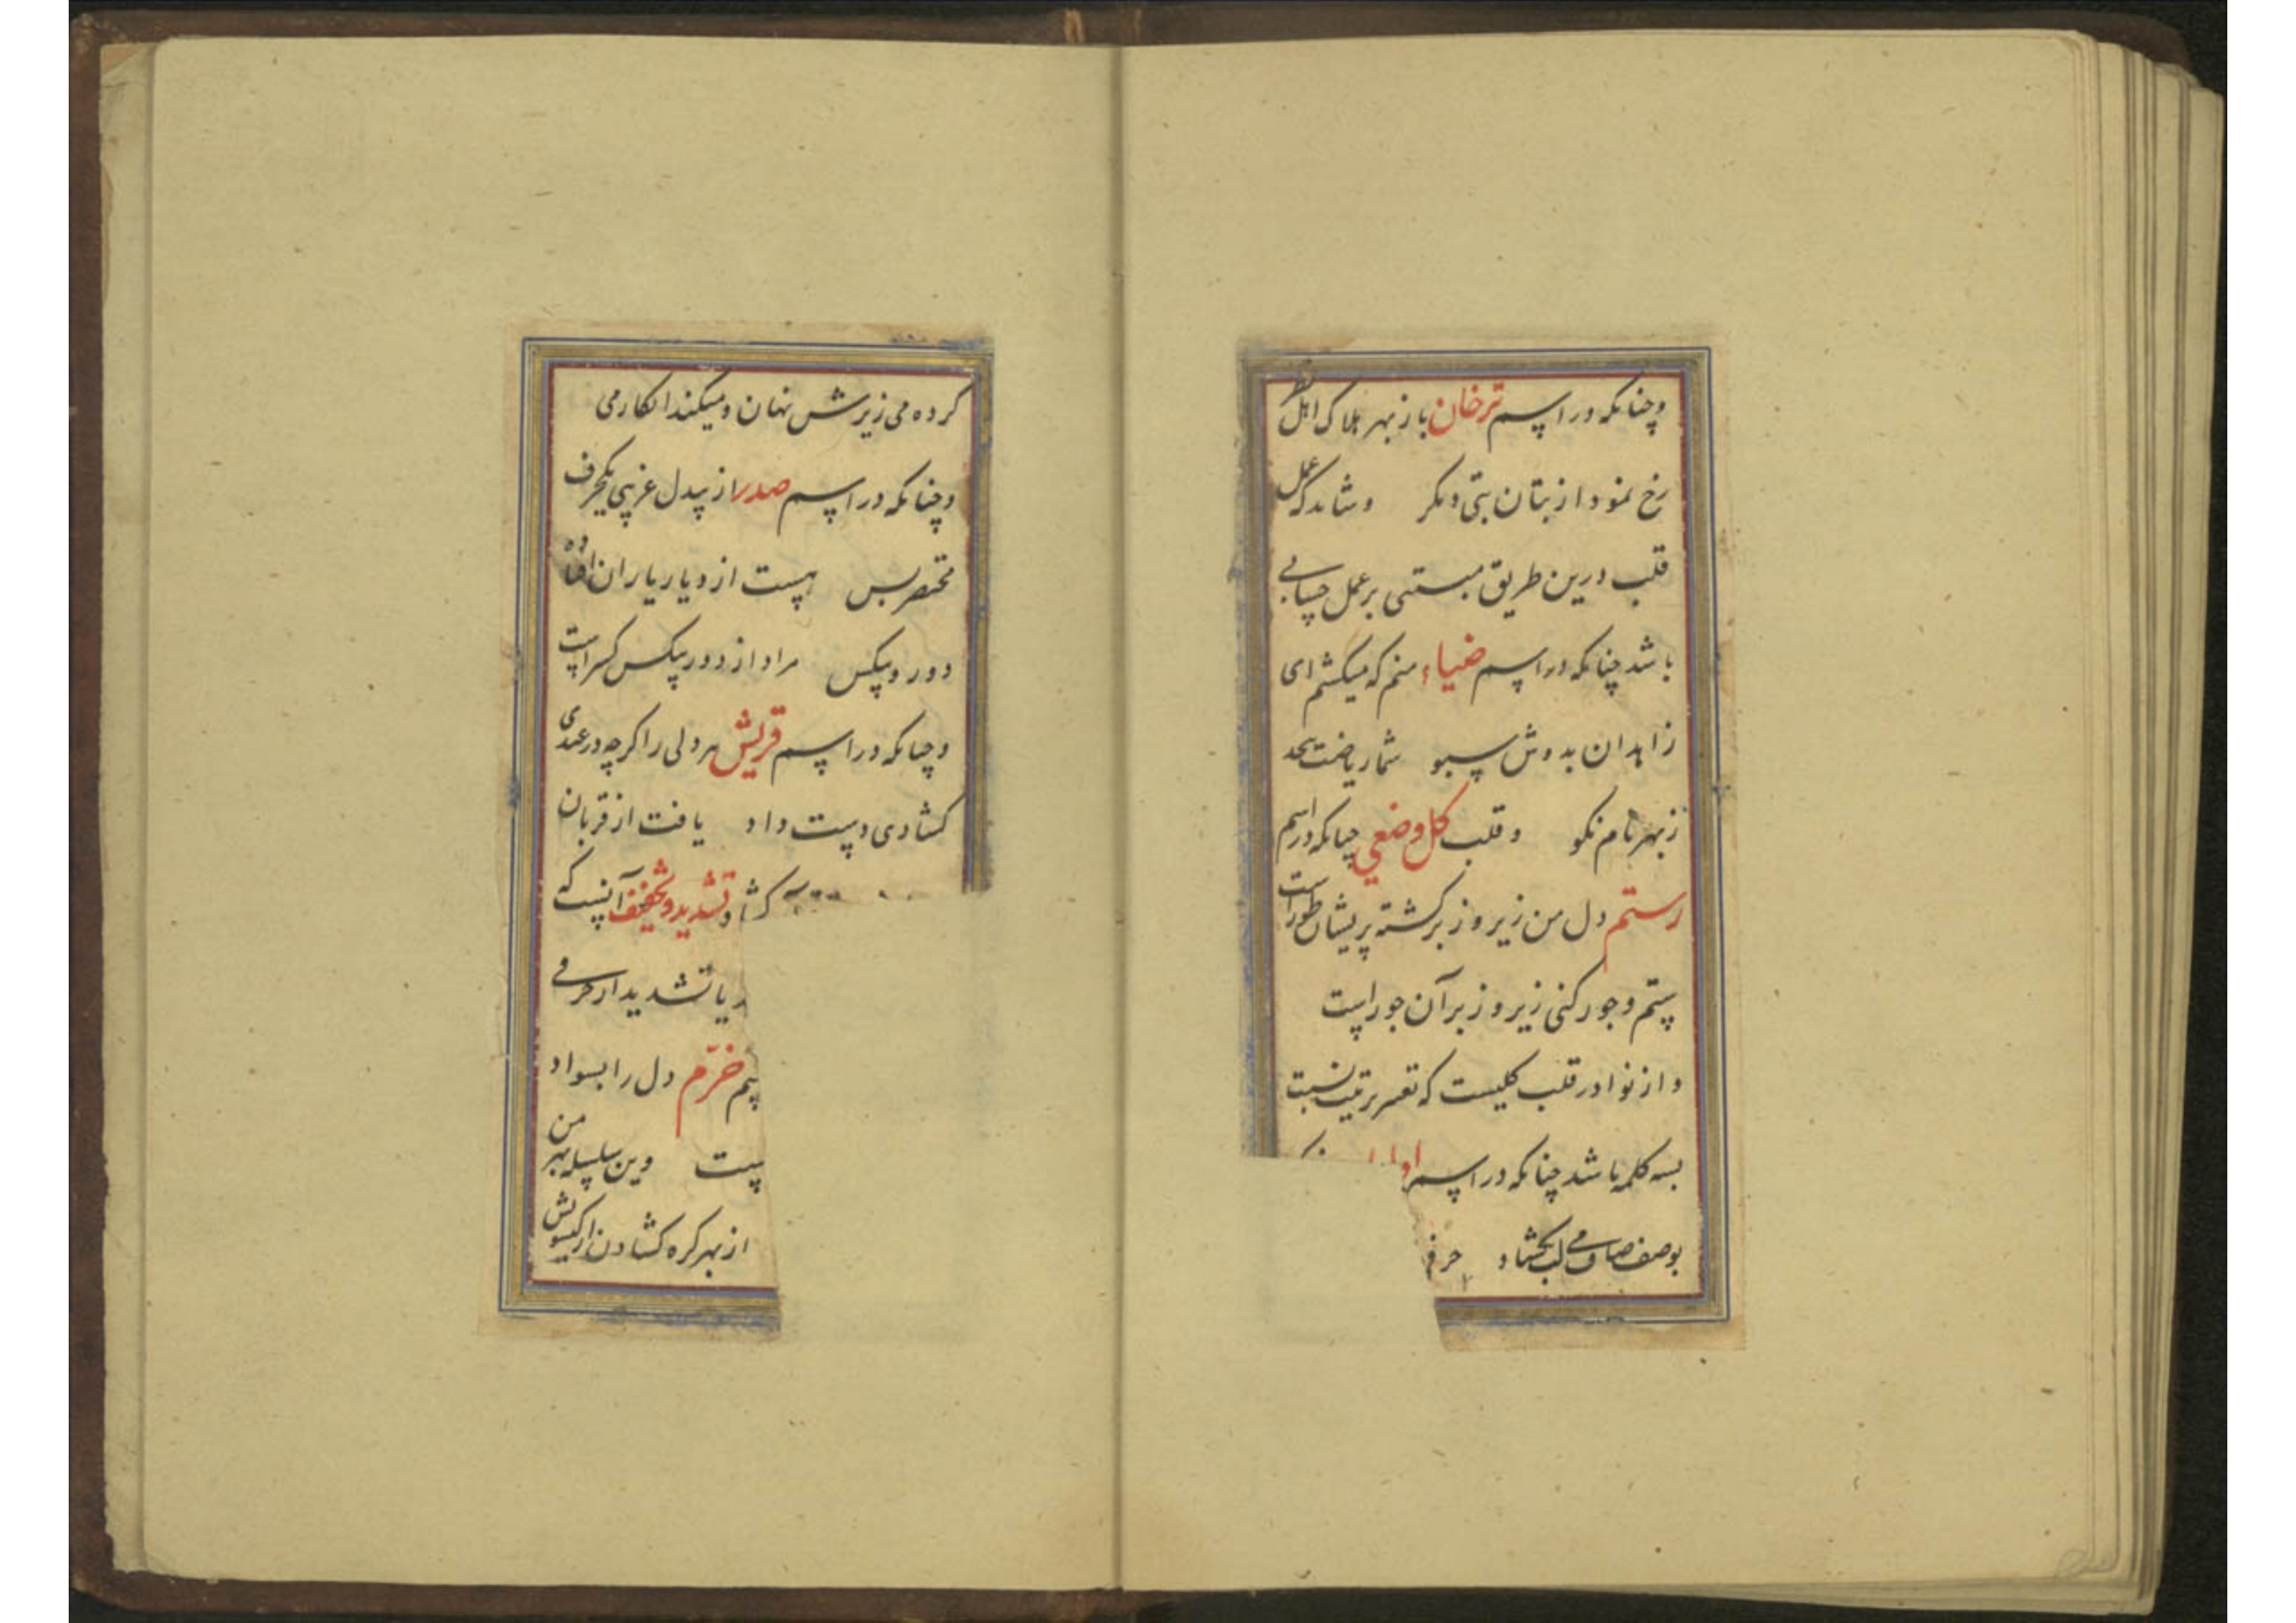 وچنانکه در اسم ترخان باز بهر هلاک اهل نظر
رخ نمود از بتان بتی دیگر و شاید که عمل
قلب درین طریق مبتنی بر عمل حسابی
باشد چنانکه در اسم ضیاء منم که میکشم ای
زاهدان بدوش سبو شما ریاضت بیحد
زبهر نام نکو و قلب کل وضعی چنانکه در اسم
رستم دل من زیر و زبر کشته پریشان طورست
ستم وجور کنی زیر و زبر آن جورست
و از نوادر قلب کلیست که تغییر ترتیب نسبت
بسه کلمه باشد چنانکه در اسم
بوصف صاف می لب بکشاد حرف
کرده می زیرش نهان و میکند انکار می
وچنانکه در اسم صدر از بیدل غریبی یکحرف
مختصر بس هست از دیار یاران افتاده
دور و بیکس مراد از دور بیکس کسر است
وچنانکه در اسم قریش هر ولی را کرچه در عیدی
کشادی دست داد یافت از قربان
کشاد تشدید و تخفیف آنست که
یا تشدید از حرفی
خرّم دل را بسواد
وین سلسله بهر من
از بهر کره کشادن از کیسویش